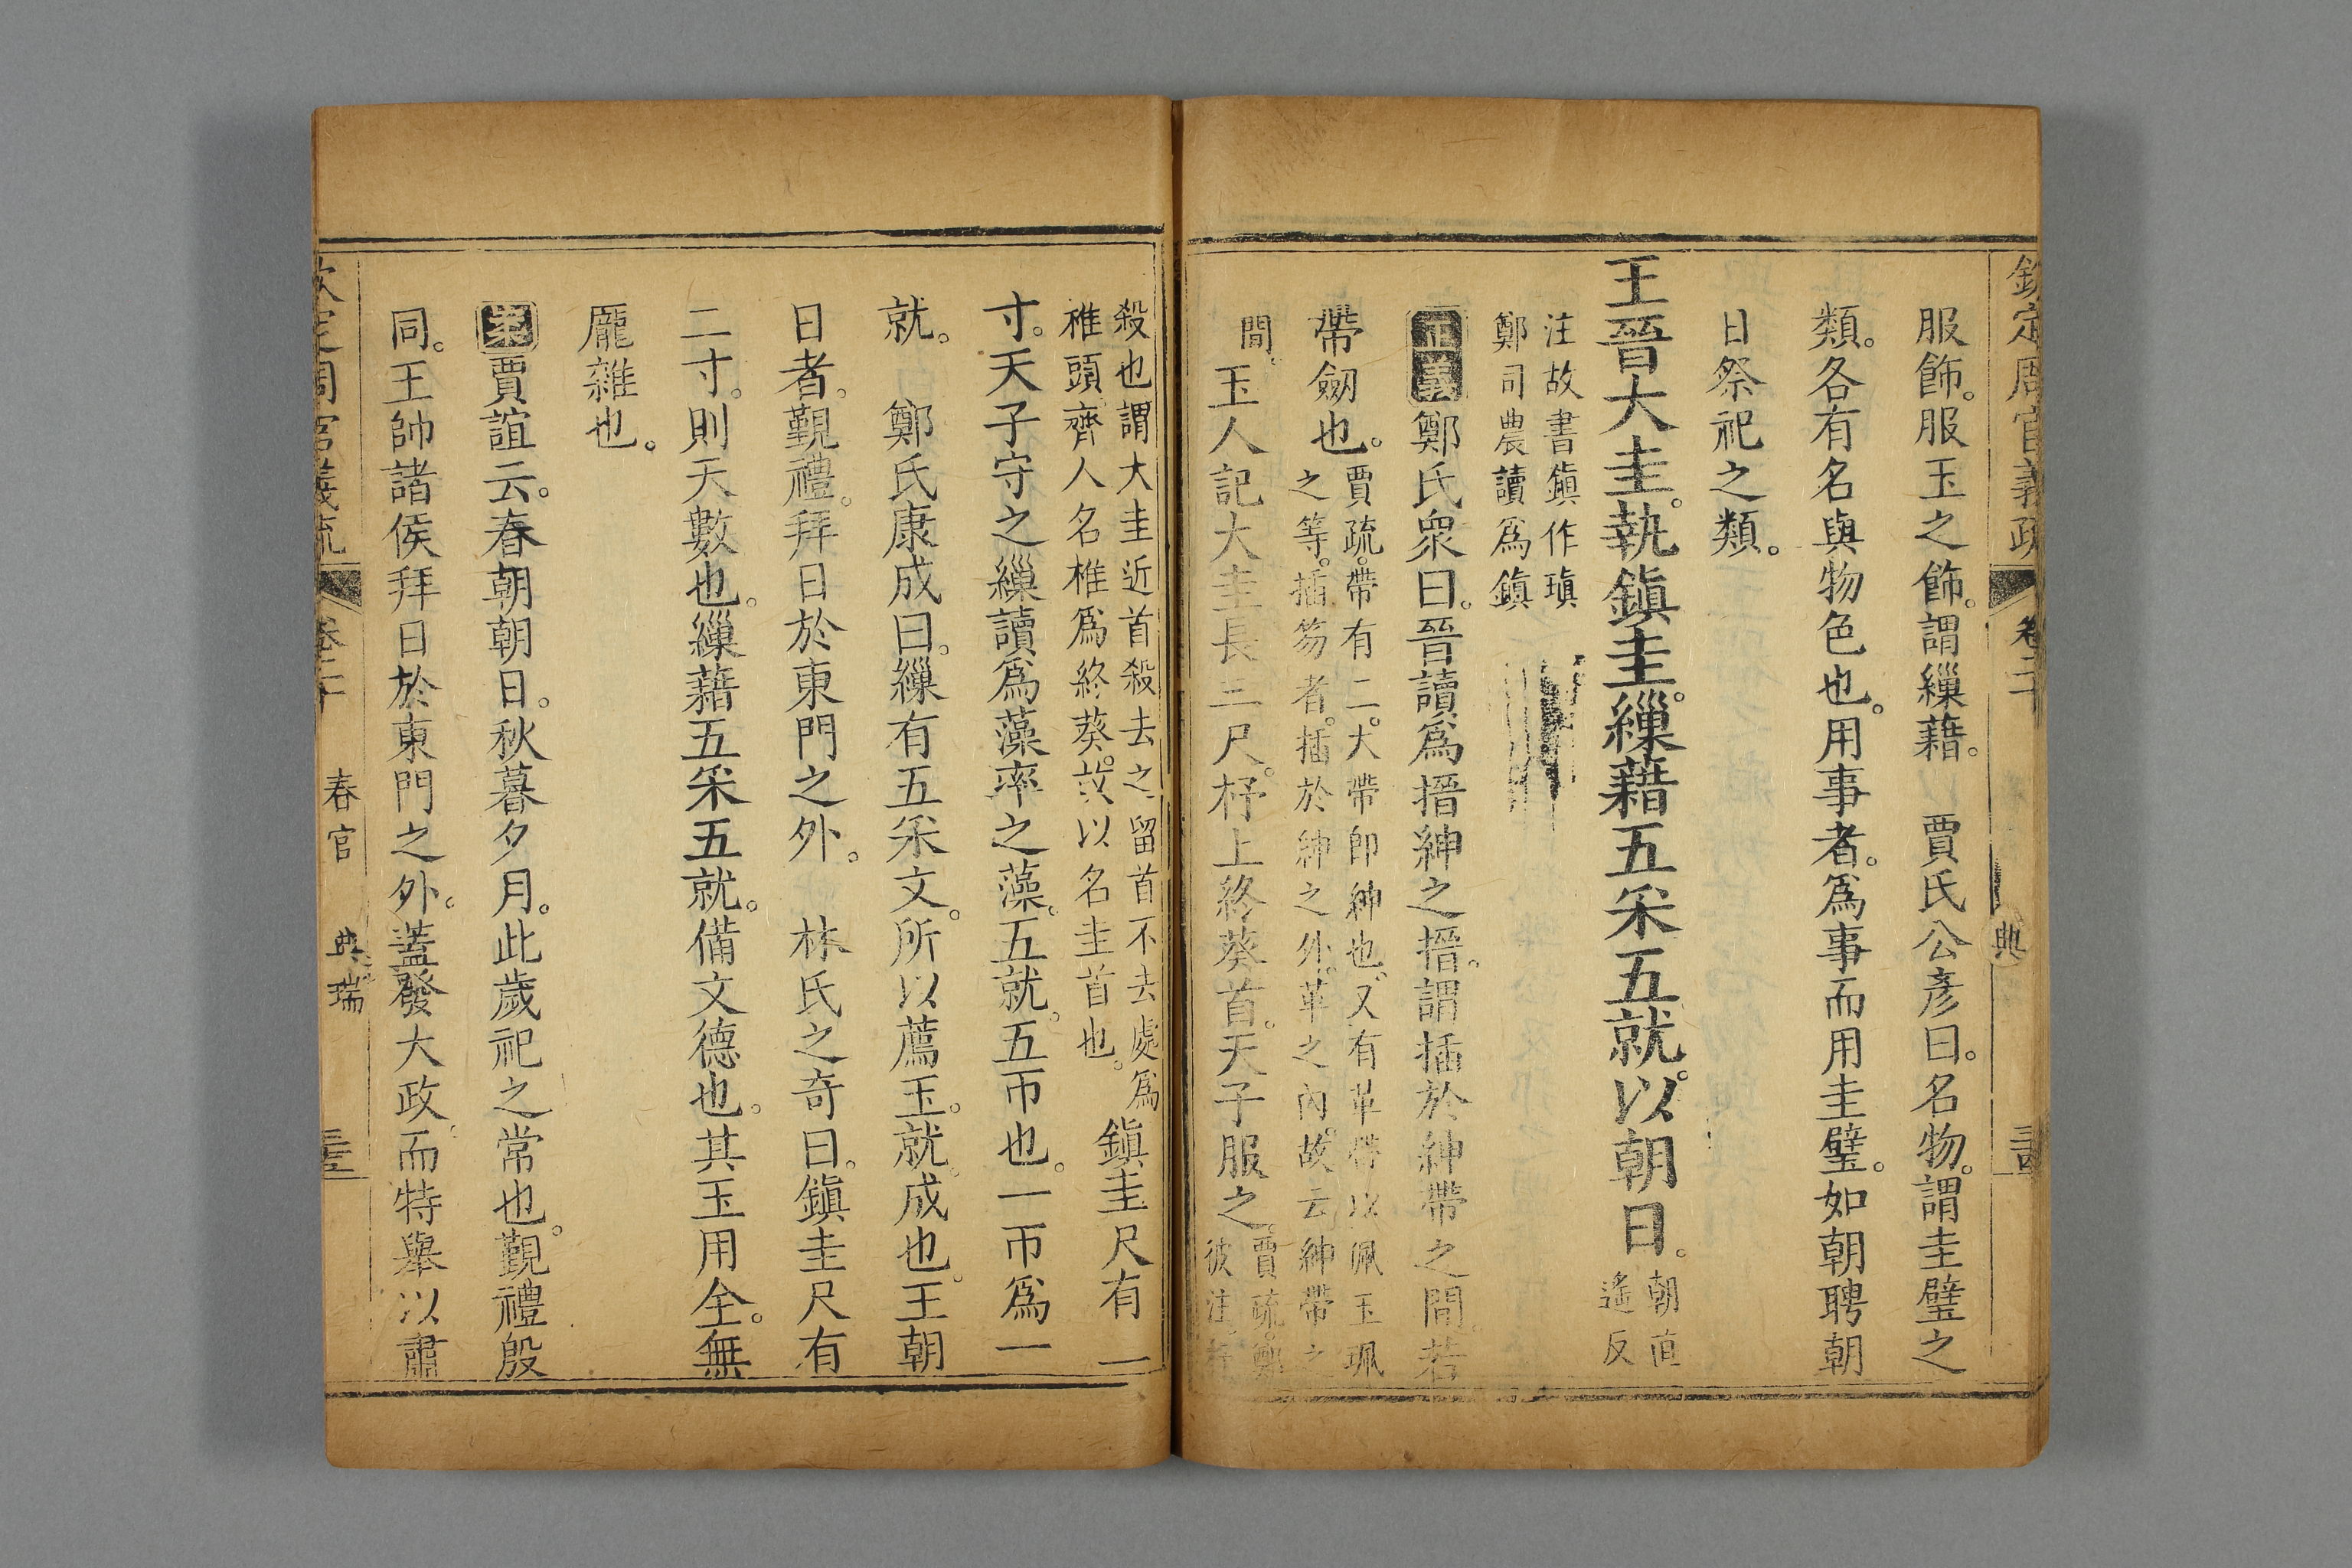 欽定周官義疏 卷二十 典
服飾。服玉之飾。謂繅藉。 賈氏公彥曰。名物。謂圭璧之
類。各有名與物色也。用事者。爲事而用圭璧。如朝聘朝
日祭祀之類。
王晉大圭。執鎭圭。繅藉五采五就。以朝日。朝直
遙反
注故書鎭作瑱
鄭司農讀爲鎭
正義鄭氏眾曰。晉讀爲搢紳之搢。謂插於紳帶之間。若
帶劒也。賈疏。帶有二。大帶卽紳也。又有革帶以佩玉珮
之等。插笏者。插於紳之外。革之內。故云紳帶之
間。 玉人記大圭長三尺。杼上終葵首。天子服之。賈疏。鄭
彼注。杼
殺也謂大圭近首殺去之留首不去處爲
椎頭齊人名椎爲終葵。故以名圭首也。 鎭圭尺有二
寸。天子守之繅讀爲藻率之藻。五就。五帀也。一帀爲一
就。 鄭氏康成曰。繅有五采文。所以薦玉。就。成也。王朝
日者。覲禮。拜日於東門之外。 林氏之奇曰。鎭圭尺有
二寸。則天數也。繅藉五采五就。備文德也。其玉用全。無
厖雜也。
案賈誼云。春朝朝日。秋暮夕月。此歲祀之常也。覲禮殷
同。王帥諸侯拜日於東門之外。蓋發大政。而特舉以肅
欽定周官義疏 卷二十 春官 典瑞